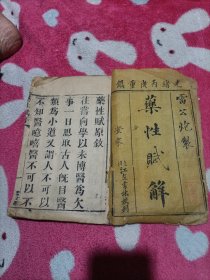 光緒丙戌重鐫
雷公炮製
藥性賦解
藥性賦原敘
往嘗向學以未博醫為欠
事一日思取古人既目醫
類為小道又謂人不可以
不知醫噫嘻醫不可以不